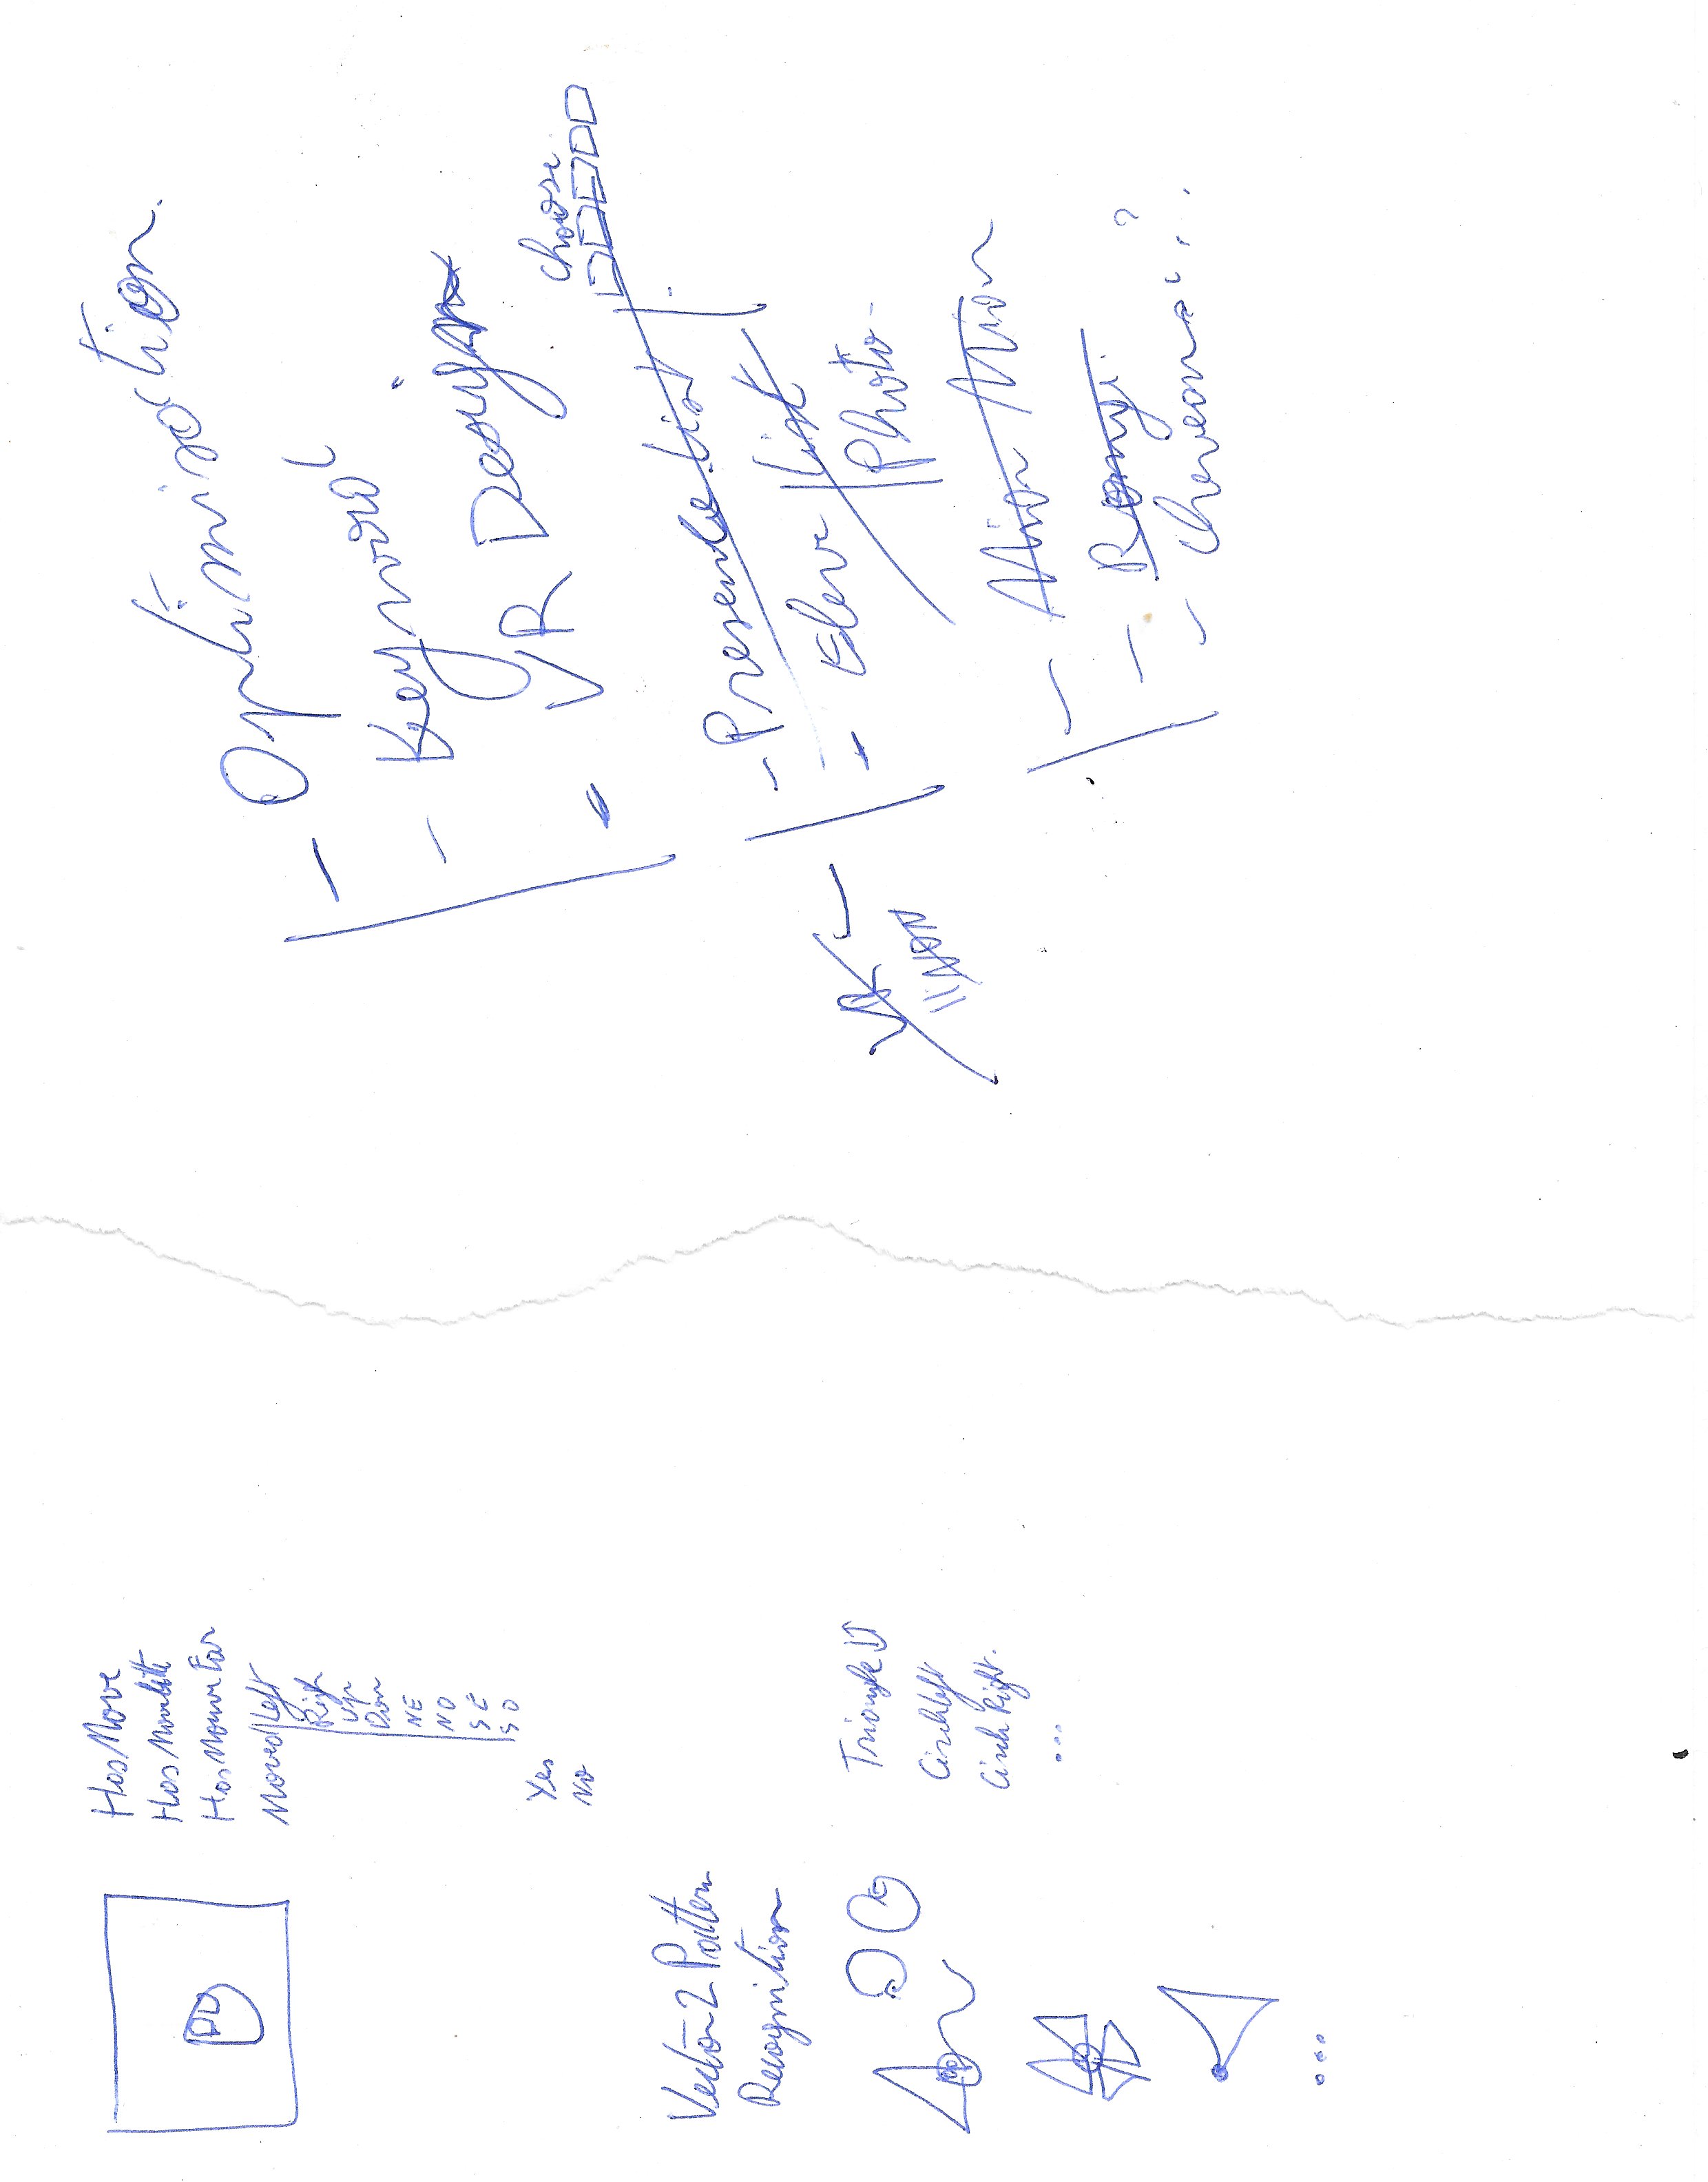 HasMove
HasMovelitte
HasMouveFar
Moved Left
Righ
Up
Don
NE
NO
SE
SO
Yes
No
Vector2 Pattern
Recognition
Triangle
Circleleft
Circle Right.
...
...
- Optimisation.
- Keyword
- VR Design
choose
- Presence list
- Eleve list
Photo
VR
- Rangi.